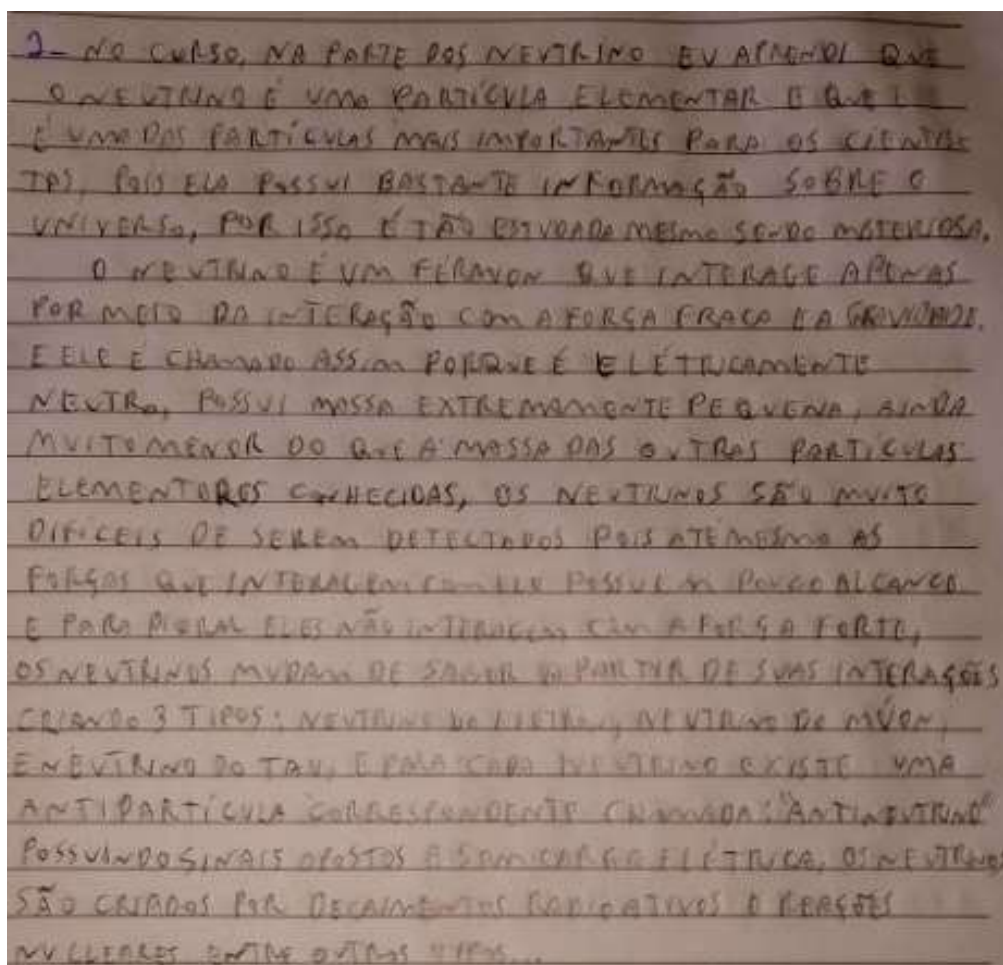 2- NO CURSO, NA PARTE DOS NEUTRINO EU APRENDI QUE
O NEUTRINO É UMA PARTÍCULA ELEMENTAR E QUE
É UMA DAS PARTÍCULAS MAIS IMPORTANTES PARA OS CIENTIS
TAS, POIS ELA POSSUI BASTANTE INFORMAÇÃO SOBRE O
UNIVERSO, POR ISSO É TÃO ESTUDADA MESMO SENDO MISTERIOSA.
O NEUTRINO É UM FÉRMION QUE INTERAGE APENAS
POR MEIO DA INTERAÇÃO COM A FORÇA FRACA E A GRAVIDADE.
E ELE É CHAMADO ASSIM PORQUE É ELÉTRICAMENTE
NEUTRO, POSSUI MASSA EXTREMAMENTE PEQUENA, AINDA
MUITO MENOR DO QUE A MASSA DAS OUTRAS PARTÍCULAS
ELEMENTARES CONHECIDAS, OS NEUTRINOS SÃO MUITO
DIFÍCEIS DE SEREM DETECTADOS POIS ATÉ MESMO AS
FORÇAS QUE INTERAGEM COM ELE POSSUEM POUCO ALCANCE
E PARA PIORAR ELES NÃO INTERAGEM COM A FORÇA FORTE,
OS NEUTRINOS MUDAM DE SABOR A PARTIR DE SUAS INTERAÇÕES
CRIANDO 3 TIPOS: NEUTRINO DO ELÉTRON, NEUTRINO DO MÚON,
E NEUTRINO DO TAU, E PARA CADA NEUTRINO EXISTE UMA
ANTIPARTÍCULA CORRESPONDENTE CHAMADA: "ANTINEUTRINO"
POSSUINDO SINAIS OPOSTOS E SEM CARGA ELÉTRICA, OS NEUTRINOS
SÃO CRIADOS POR DECAIMENTOS RADIOATIVOS O REAÇÕES
NUCLEARES ENTRE OUTROS TIPOS...